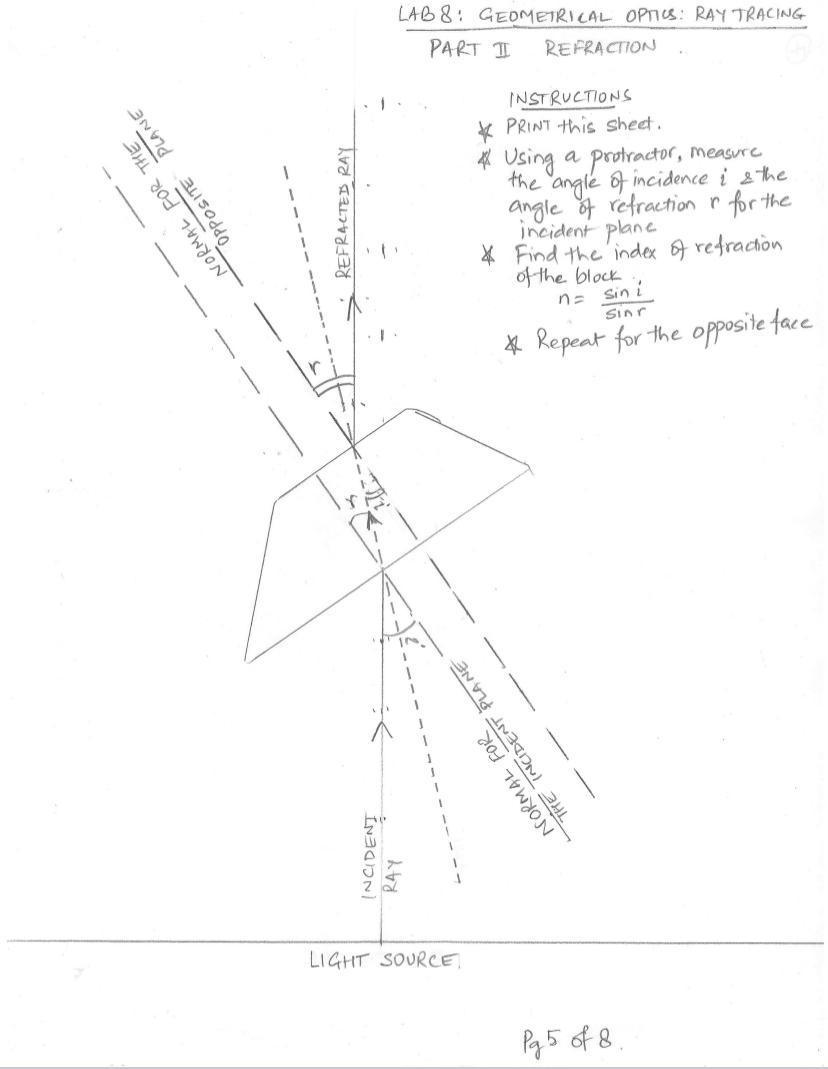 LAB 8: GEOMETRICAL OPTICS: RAY TRACING
PART II REFRACTION .
INSTRUCTIONS
* PRINT this sheet.
* Using a protractor, measure
the angle of incidence i & the
angle of refraction r for the
incident plane
* Find the index of refraction
of the block :
n = sin i
sin r
* Repeat for the opposite face
NORMAL FOR THE
OPPOSITE PLANE
REFRACTED RAY
r
r
i
i
NORMAL FOR
THE INCIDENT PLANE
INCIDENT
RAY
LIGHT SOURCE.
Pg 5 of 8.